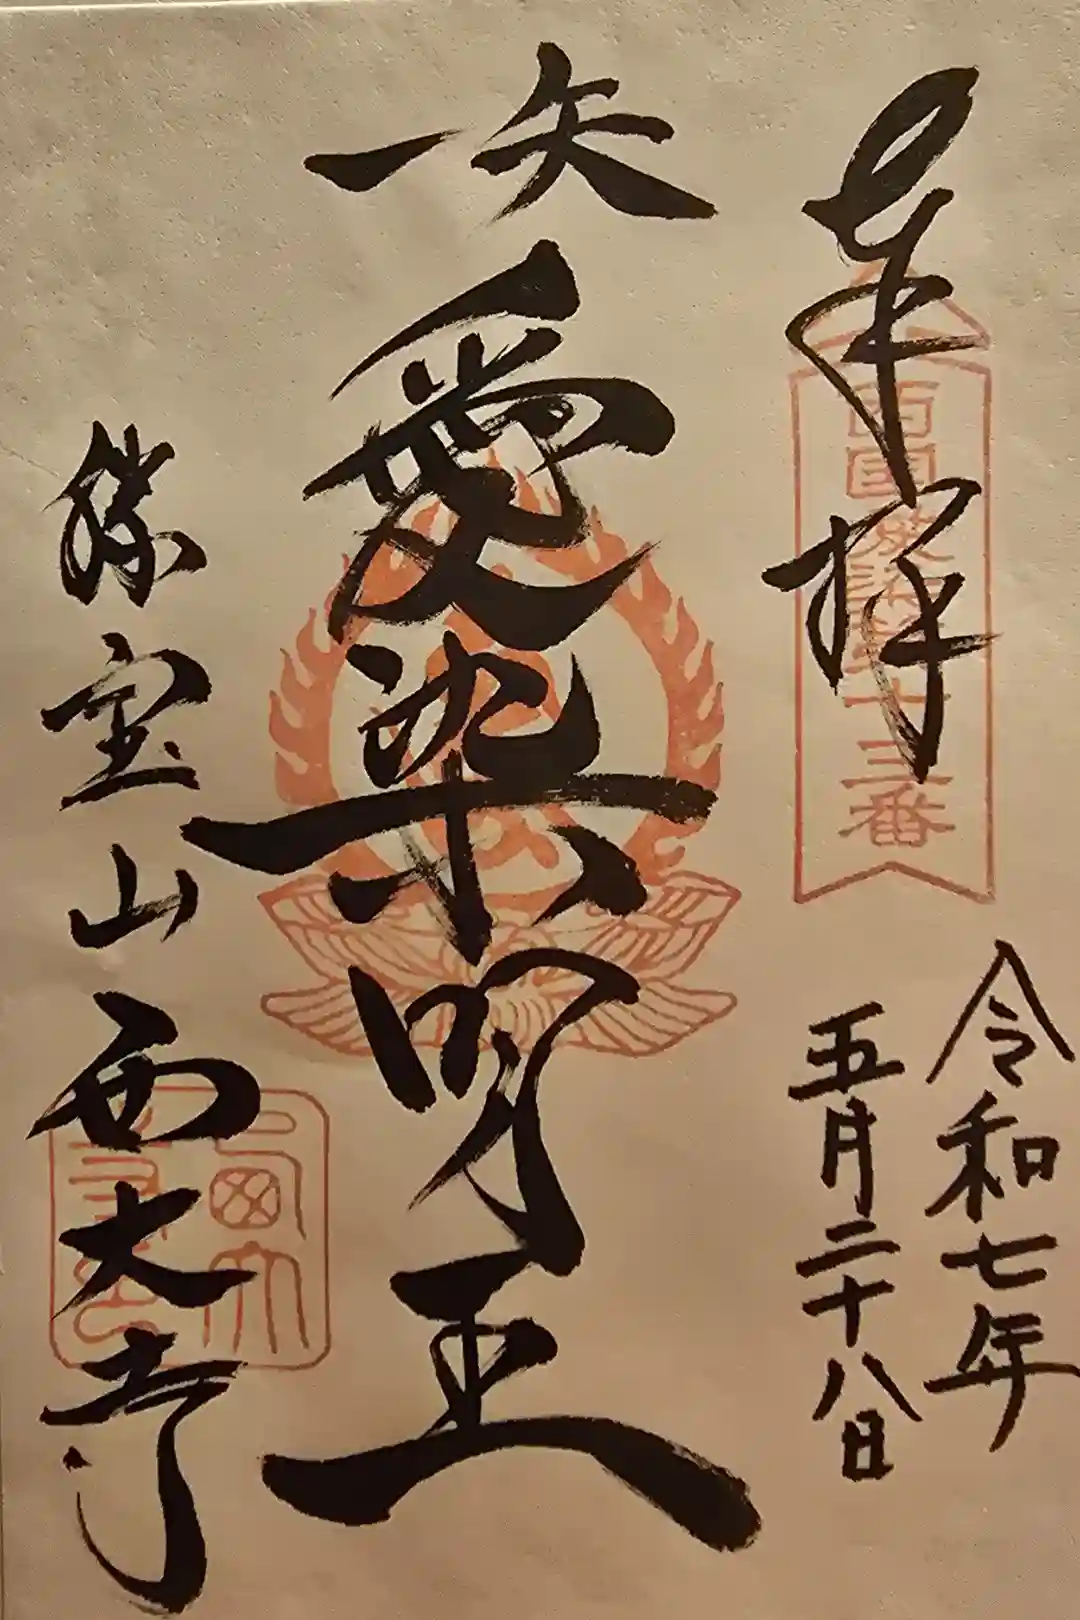 奉拝
西國 十三番
令和七年
五月二十八日
一矢
愛染明王
勝宝山西大寺